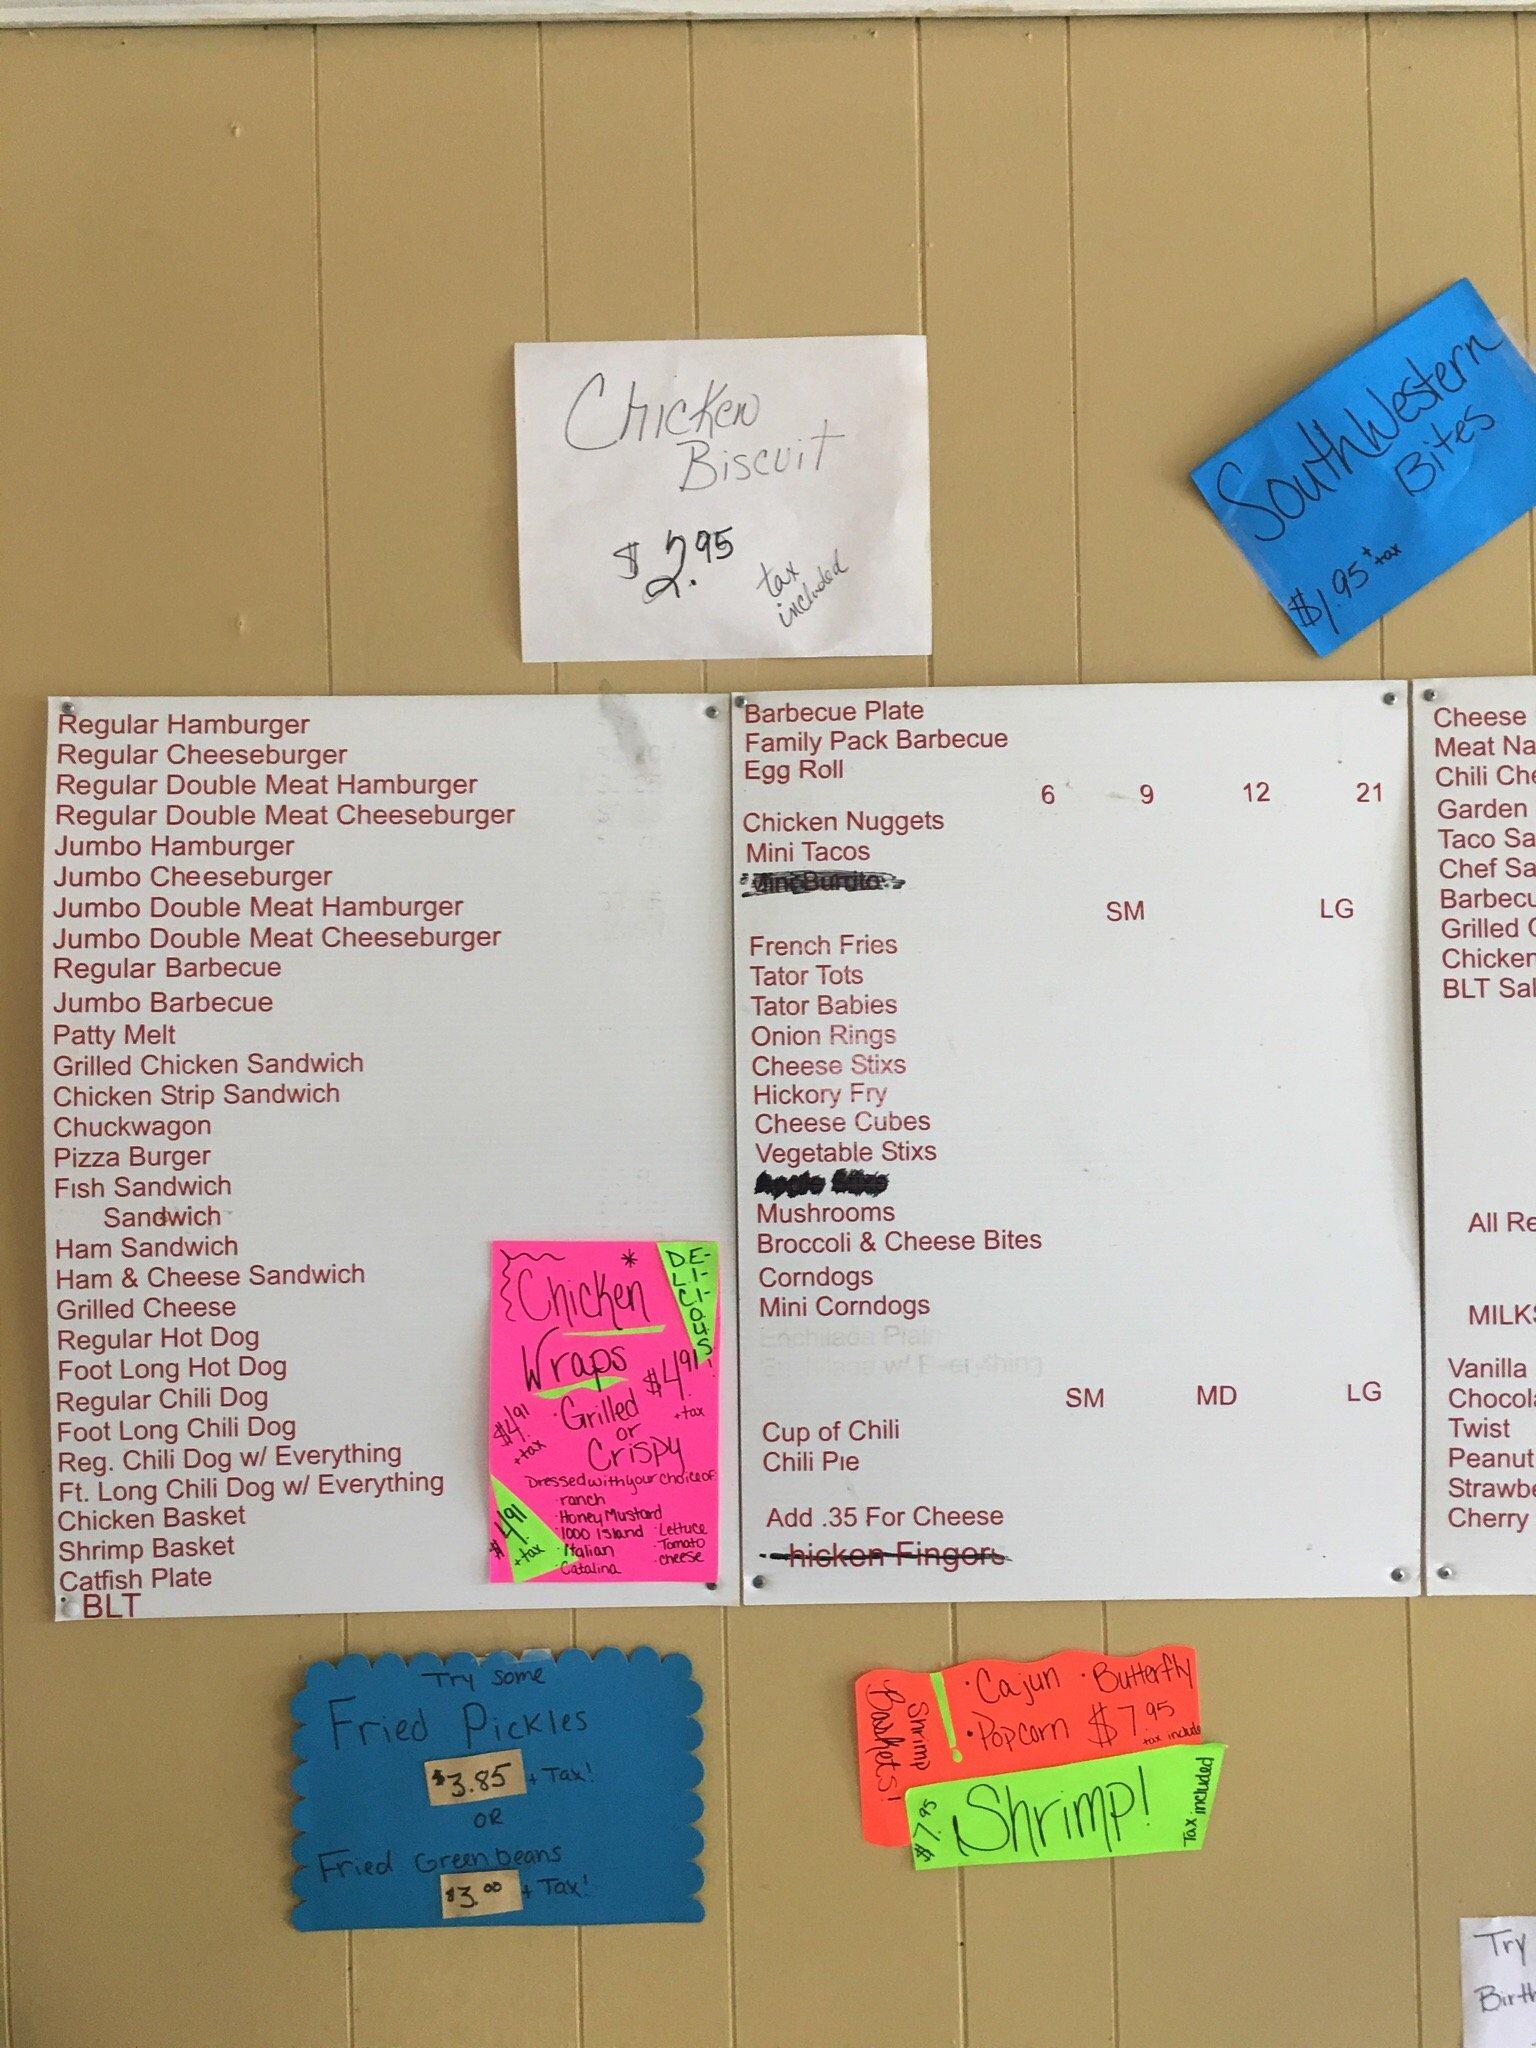 Chicken
Biscuit
$2.95
tax
included
SouthWestern
Bites
$1.95 + tax
Regular Hamburger
Regular Cheeseburger
Regular Double Meat Hamburger
Regular Double Meat Cheeseburger
Jumbo Hamburger
Jumbo Cheeseburger
Jumbo Double Meat Hamburger
Jumbo Double Meat Cheeseburger
Regular Barbecue
Jumbo Barbecue
Patty Melt
Grilled Chicken Sandwich
Chicken Strip Sandwich
Chuckwagon
Pizza Burger
Fish Sandwich
Sandwich
Ham Sandwich
Ham & Cheese Sandwich
Grilled Cheese
Regular Hot Dog
Foot Long Hot Dog
Regular Chili Dog
Foot Long Chili Dog
Reg. Chili Dog w/ Everything
Ft. Long Chili Dog w/ Everything
Chicken Basket
Shrimp Basket
Catfish Plate
BLT
* DE-
LI-
CI-
OUS!
Chicken
Wraps
$4.91
+tax
$4.91
+tax
· Grilled
or
Crispy
Dressed with your choice of:
· ranch
· Honey Mustard
· 1000 island · Lettuce
· Italian · Tomato
· Catalina · cheese
$4.91
+tax
Barbecue Plate
Family Pack Barbecue
Egg Roll
6 9 12 21
Chicken Nuggets
Mini Tacos
SM LG
French Fries
Tator Tots
Tator Babies
Onion Rings
Cheese Stixs
Hickory Fry
Cheese Cubes
Vegetable Stixs
Mushrooms
Broccoli & Cheese Bites
Corndogs
Mini Corndogs
Enchilada Plain
Enchilada w/ Everything
SM MD LG
Cup of Chili
Chili Pie
Add .35 For Cheese
hicken Fingers
Cheese
Meat Na
Chili Che
Garden
Taco Sa
Chef Sa
Barbecu
Grilled C
Chicken
BLT Sal
All Re
MILKS
Vanilla
Chocola
Twist
Peanut
Strawbe
Cherry
Try some
Fried Pickles
$3.85 + Tax!
OR
Fried Greenbeans
$3.00 + Tax!
Shrimp
Baskets!
· Cajun · Butterfly
· Popcorn $7.95
tax include
$7.95 Shrimp! Tax included
Try
Birth